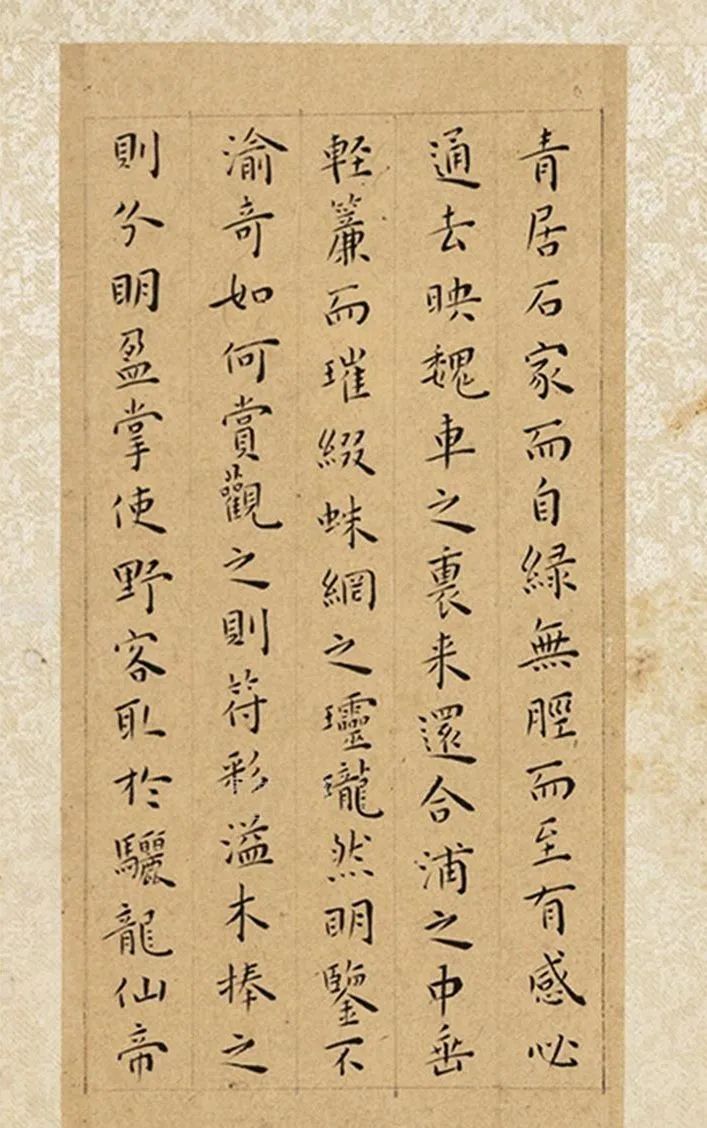 青居石家而自緑無脛而至有感必
通去映魏車之裏来還合浦之中垂
軽簾而璀綴蛛網之瓏然明鑒不
渝奇如何賞觀之則符彩溢木捧之
則兮明盈掌使野客取於驪龍仙帝